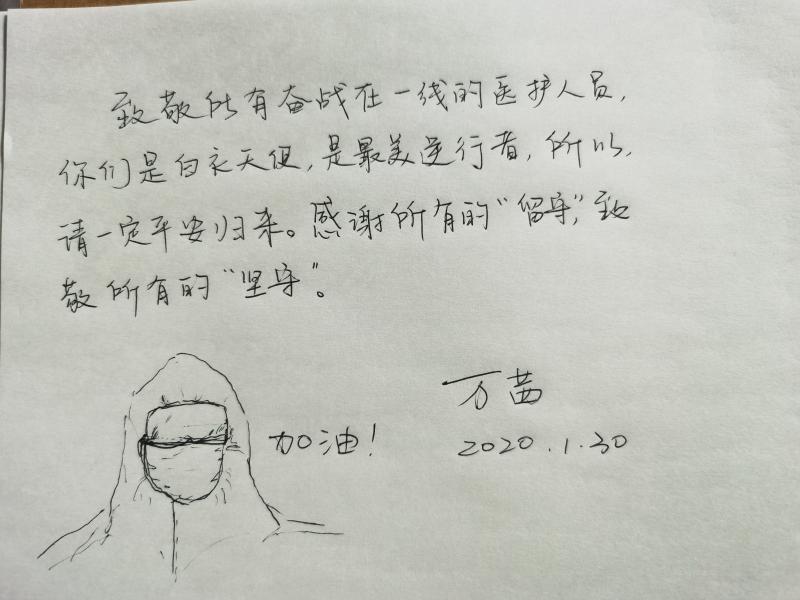 致敬所有奋战在一线的医护人员,
你们是白衣天使,是最美逆行者,所以,
请一定平安归来。感谢所有的“留守”,致
敬所有的“坚守”。
加油!
万茜
2020.1.30